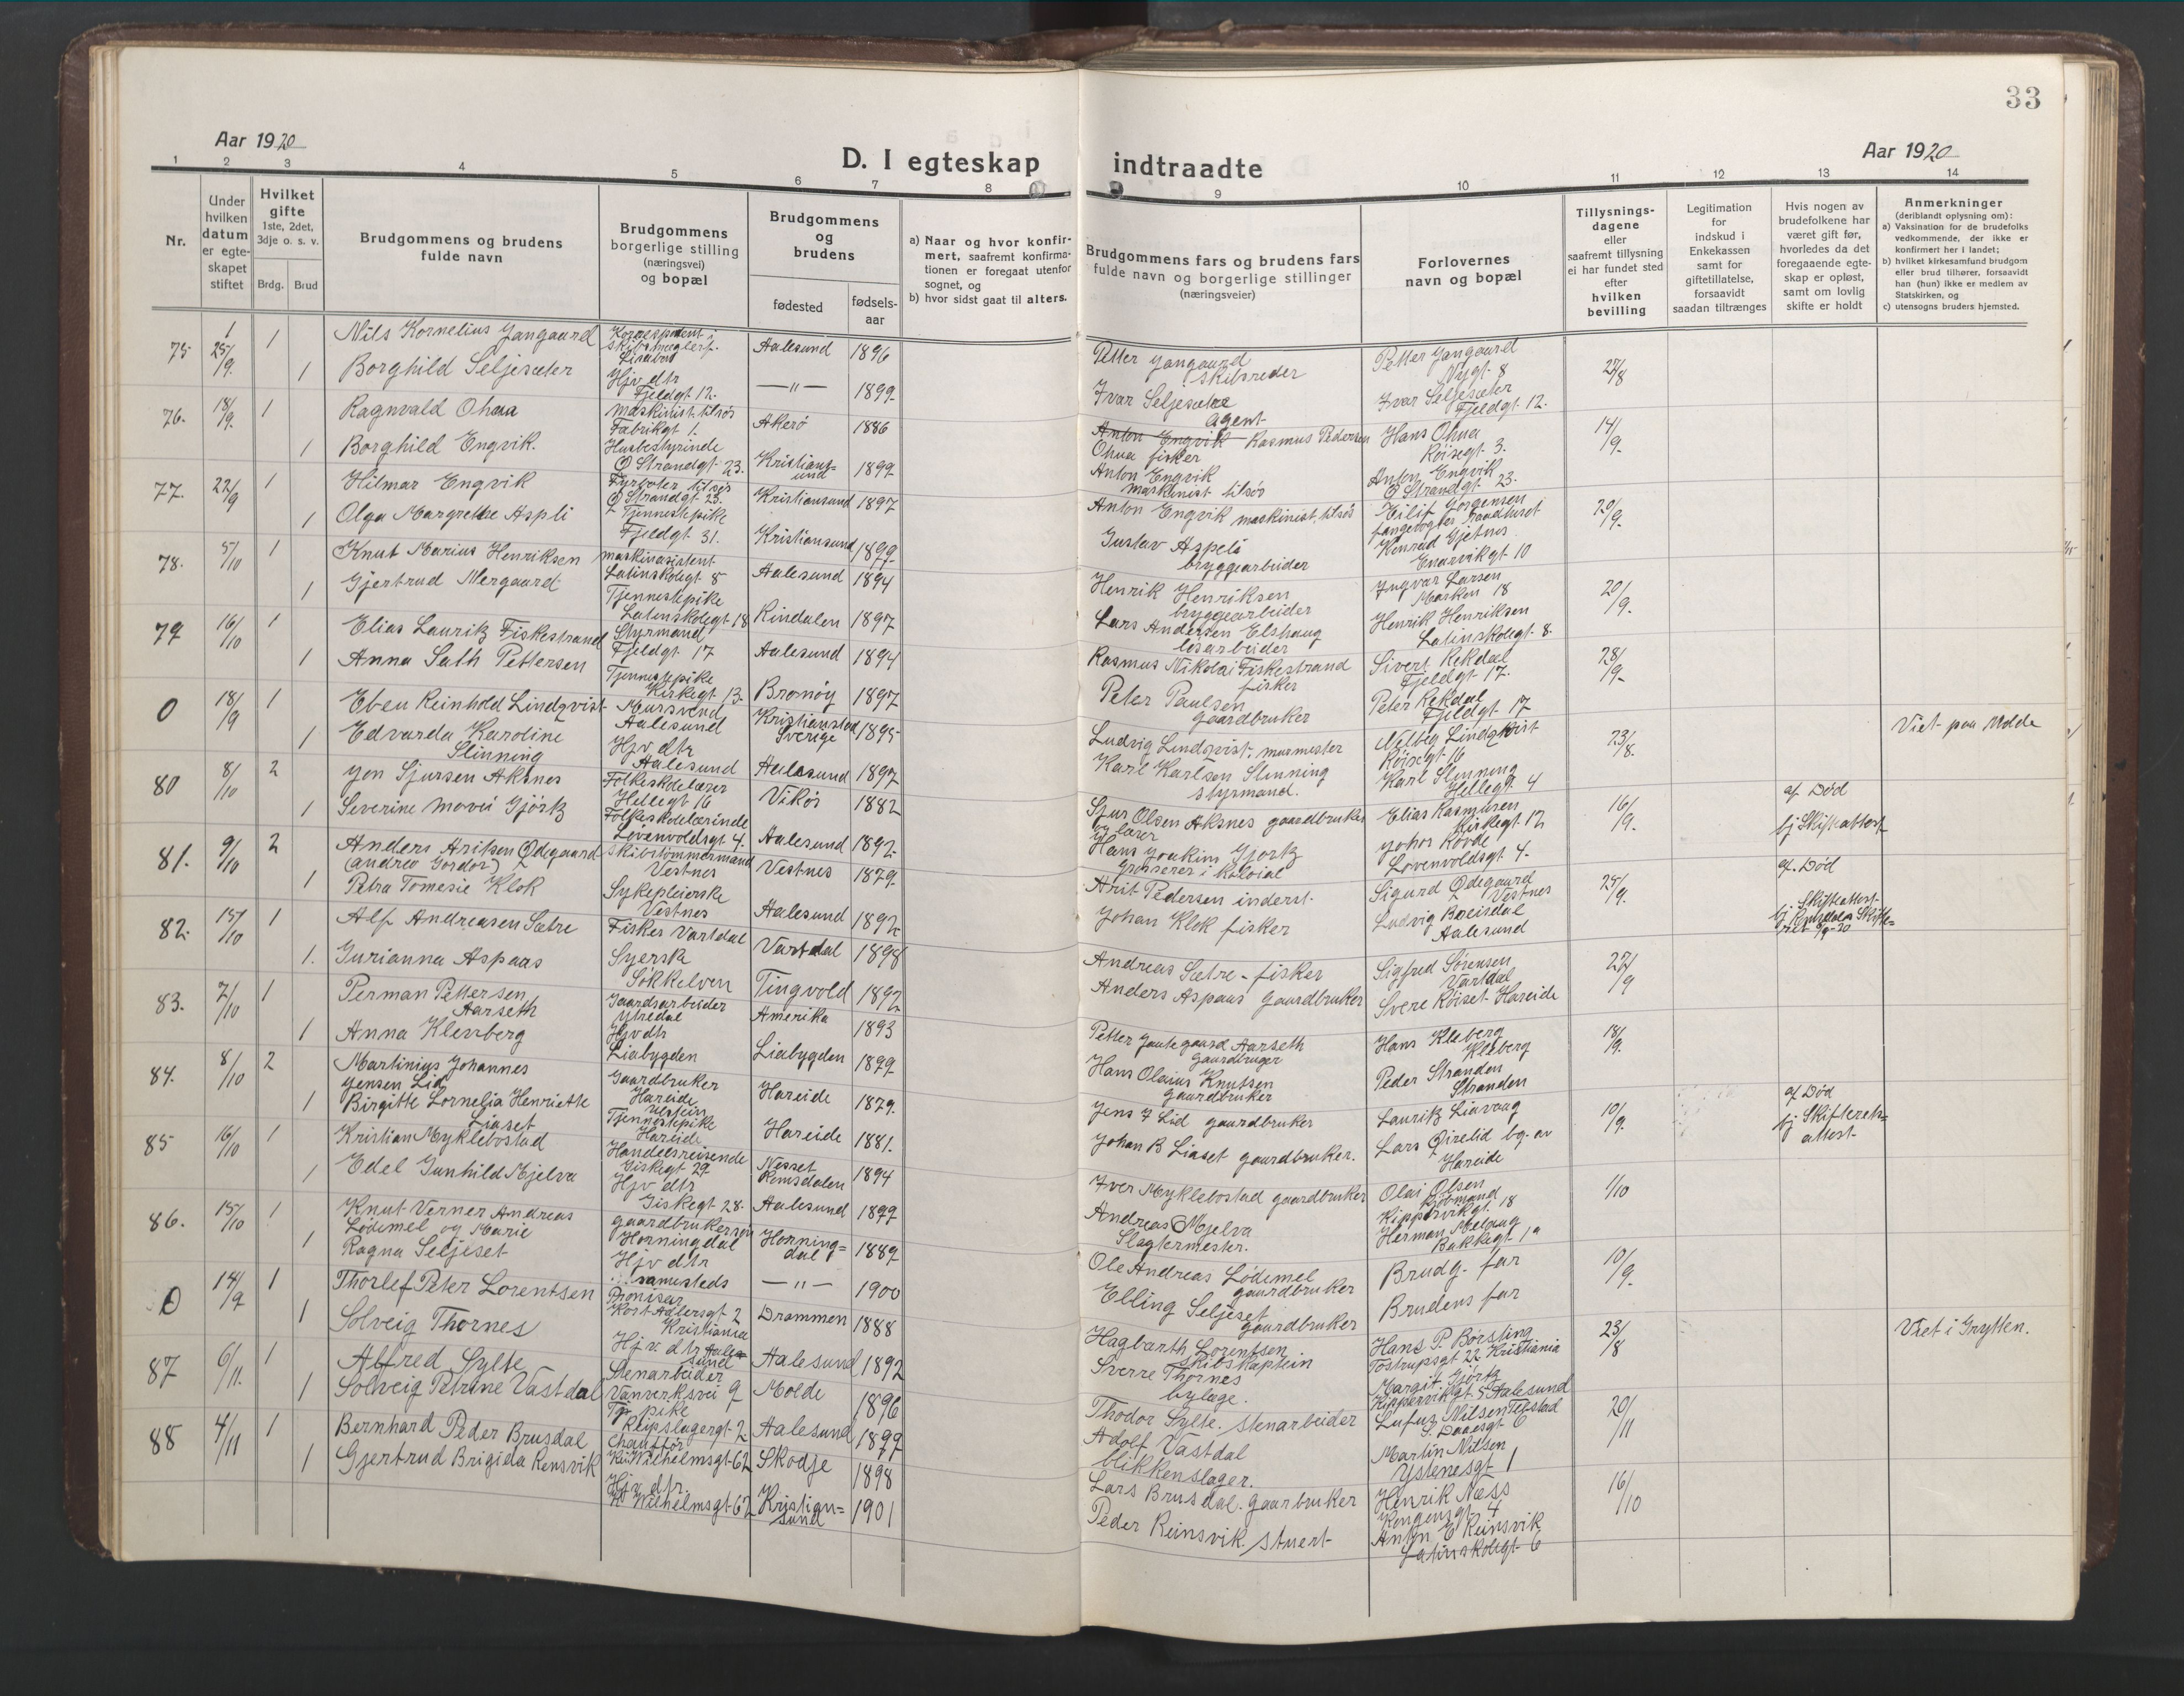 33
Aar 1920
D. I egteskap indtraadte
Aar 1920
1 2 3 4 5 6 7 8 9 10 11 12 13 14
Nr.
Under hvilken datum er egte-skapet stiftet
Hvilket gifte 1ste, 2det, 3dje o. s. v.
Brdg. Brud
Brudgommens og brudens fulde navn
Brudgommens borgerlige stilling (næringsvei) og bopæl
Brudgommens og brudens
fødested
fødsels-aar
a) Naar og hvor konfir-mert, saafremt konfirma-tionen er foregaat utenfor sognet, og
b) hvor sidst gaat til alters.
Brudgommens fars og brudens fars fulde navn og borgerlige stillinger (næringsveier)
Forlovernes navn og bopæl
Tillysnings-dagene eller saafremt tillysning ei har fundet sted efter hvilken bevilling
Legitimation for indskud i Enkekassen samt for giftetillatelse, forsaavidt saadan tiltrænges
Hvis nogen av brudefolkene har været gift før, hvorledes da det foregaaende egte-skap er opløst, samt om lovlig skifte er holdt
Anmerkninger (deriblandt oplysning om):
a) Vaksination for de brudefolks vedkommende, der ikke er konfirmert her i landet;
b) hvilket kirkesamfund brudgom eller brud tilhører, forsaavidt han (hun) ikke er medlem av Statskirken, og
c) utensogns bruders hjemsted.
75 25/9 1 Nils Kornelius Jangaard
Aalesund 1896
Petter Jangaard Skibsreder
Petter Jangaard Nygt 8
27/8
1 Borghild Seljesæter
Hjv dtr Fjeldgt 12.
—"— 1899
Ivar Seljesæter Agent
Ivar Seljesæter Fjeldgt 12.
76. 18/9 1 Ragnvald Ohua
Maskinist tilsøs Fabrikgt 1.
Akerø 1886
Anton Engvik Rasmus Pedersen Ohua fisker
Hans Ohua Røisegt 3.
14/9.
1 Borghild Engvik.
Husbestyrinde Ø Strandgt 23.
Kristians=und 1899
Anton Engvik maskinist tilsøs
Anton Engvik Ø Strandgt 23.
77. 22/9 1 Hilmar Engvik
Fyrbøter tilsøs Ø Strandgt 23.
Kristiansund 1897
Anton Engvik maskinist, tilsøs
Eilif Jørgensen
20/9.
1 Olga Margrethe Aspli
Tjennestepike Fjeldgt 31.
Kristiansund 1899
Gustav Aspeli bryggearbeider
Konrad Gjetnes
78. 5/10 1 Knut Marius Henriksen
maskinasistent Latinskolegt 8
Aalesund 1894
Henrik Henriksen bryggearbeider
Ingvar Larsen Marken 18
20/9.
1 Gjertrud Mergaard
Tjennestepike Latinskolegt 18
Rindalen 1897
Lars Andersen Elshaug løsarbeider
Henrik Henriksen Latinskolegt 8.
79 16/10 1 Elias Lauritz Fiskestrand
Styrmand Fjeldgt 17
Aalesund 1894
Rasmus Nikolai Fiskestrand fisker
Sivert Rekdal Fjeldgt 17.
28/9
1 Anna Sath Pettersen
Tjennestepike Kirkegt 13.
Bromøy 1897
Peter Paulsen gaardbruker
Peter Rekdal Fjeldgt 17
0 18/9 1 Eben Reinhold Lindqvist
Mursvend Aalesund
Kristianstad Sverige 1895
Ludvig Lindqvist, murmester
Lindqvist Røisegt 16
23/8.
Viet paa Molde
1 Edvarda Karoline Slinning
Hjv dtr Aalesund
Aalesund 1897
Karl Karlsen Slinning styrmand.
Karl Slinning Hellegt 4
80 8/10 2 Jon Sjursen Aksnes
Folkeskolelærer Hellegt 16
Vikør 1882
Sjur Olsen Aksnes gaardbruker og lærer
Elias Rasmussen Kirkegt 12
16/9.
a) Død
b) Skifteattest
1 Severine Gjørtz
Folkeskolelærerinde Løvenvoldsgt 4.
Aalesund 1892
Hans Joakim Gjørtz Grosserer i kolonial
Johs Rovde Løvenvoldsgt 4.
81. 9/10 2 Anders Ariksen Ødegaard (Andrew Gordor)
Skibstømmermand Vestnes
Vestnes 1879
Arit Pedersen inderst.
Sigurd Ødegaard Vestnes
25/9.
a). Død
b) Skifteattest
1 Petra Tomesie Klok
Sykepleierske Vestnes
Aalesund 1892
Johan Klok fisker
Ludvig Aalesund
82. 15/10 1 Alf Andreasen Sætre
Fisker Vartdal
Vartdal 1898
Andreas Sætre - fisker
Sigfred Sørensen Vartdal
27/9
1. Gurianna Aspaas
Syerske Søkkelven
Tingvold 1892
Anders Aspaas Gaardbruker
Svere Røiset Hareide
83. 7/10 1 Perman Pettersen Aarseth
Gaardsarbeider Ytredal
Amerika 1893
Petter Gautegaard Aarseth Gaardbruger
Hans Kleberg Kleberg
18/9.
1 Anna Klevberg
Hjvdtr Liabygden
Liabygden 1899
Hans Olaius Knutsen Gaardbruker
Peder Stranden Stranden
84. 8/10 2 Martinius Johannes Jensen Lid
Gaardbruker Hareide
Hareide 1879.
Jens Lid gaardbruker
Lauritz Liavaag
10/9.
a) Død
b) Skifteret=attest
1 Birgitte Cornelia Henriette Liaset
Tjennestepike Hareide
Hareide 1881.
Johan B Liaset gaardbruker.
Lars Hareide
85 16/10 1 Kristian Myklebostad
Handelsreisende Giskegt 29
Nesset Romsdalen 1894
Iver Myklebostad gaardbruker
Olai Olsen Kjøbmand Kippervikgt. 18
1/10
1 Edel Gunhild Mjelva
Hjv dtr Giskegt 28.
Aalesund 1899
Andreas Mjelva Slagtermester.
Herman Bakkegt 1a
86. 15/10 1 Knut Verner Andreas Lødemel og
gaardbrukersøn Horningdal
Honning=dal 1889
Ole Andreas Lødemel gaardbruker
Brudg. far
10/9.
1 Marie Ragna Seljeset
Hjv dtr samesteds
—"— 1900
Elling Seljeset gaardbruker
Brudens far
0 14/9 1 Thorlef Peter Lorentsen
Kort Adlersgt 2 Kristiania
Drammen 1888
Hagbarth Lorentsen Skibskaptein
Hans P. Børsting Tostrupsgt 22 Kristiania
23/8
Viet i Grytten.
1 Solveig Thornes
Hj v. dtr Aalesund
Aalesund 1892
Sverre Thornes
Margit Gjørtz Kippervikgt 5 Aalesund
87 6/11. 1 Alfred Sylte
Stenarbeider Vanverksvei 9
Molde 1896
Thodor Sylte. Stenarbeider
Nilsen
20/11
1 Solveig Petrine Vastdal
Tj. pike Reipslagergt 2
Aalesund 1899
Adolf Vastdal blikkenslager.
Martin Nilsen Ystenesgt 1
88 4/11 1 Bernhard Peder Brusdal
Chauffør K. Wilhelmsgt 62
Skodje 1898
Lars Brusdal. Gaarbruker
Henrik Næss Kongensgt 4
16/10
1 Gjertrud Brigida Rensvik
Hjv dtr. K Wilhelmsgt 62
Kristian=sund 1901
Peder Reinsvik. Stuert
Anton E Reinsvik Latinskolegt 6